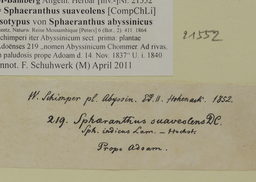 Sphaeranthus suaveolens [CompChLi]
Isotypus von Sphaeranthus abyssinicus
Naturw. Reise Mossambique [Peters] 6 (Bot., 2): 411. 1864
Schimperi iter Abyssinicum sect. prima: plantae
Adoënses 219 „nomen Abyssinicum Chommer. Ad rivas
paludosis prope Adoam d. 14. Nov. 1837“ U. i. 1840
Annot. F. Schuhwerk (M) April 2011
21552
W. Schimper pl. Abyssin. Ed. II. Hohenack. 1852.
219. Sphaeranthus suaveolens DC.
Sph. indicus Lam. – Hochst.
Prope Adoam.